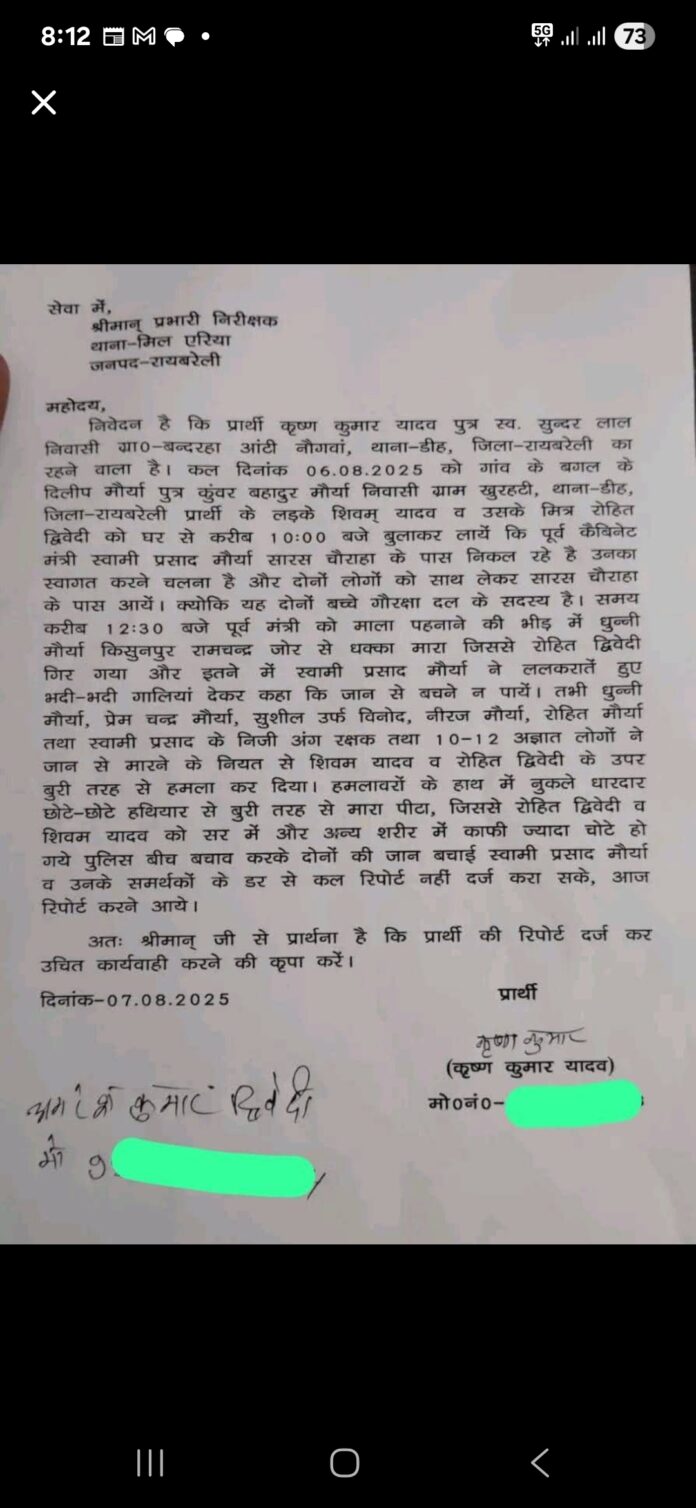 8:12
5G
73
सेवा में,
श्रीमान् प्रभारी निरीक्षक
थाना–मिल एरिया
जनपद–रायबरेली
महोदय,
निवेदन है कि प्रार्थी कृष्ण कुमार यादव पुत्र स्व. सुन्दर लाल
निवासी ग्रा0–बन्दरहा आंटी नौगवां, थाना–डीह, जिला–रायबरेली का
रहने वाला है। कल दिनांक 06.08.2025 को गांव के बगल के
दिलीप मौर्या पुत्र कुंवर बहादुर मौर्या निवासी ग्राम खुरहटी, थाना–डीह,
जिला–रायबरेली प्रार्थी के लड़के शिवम् यादव व उसके मित्र रोहित
द्विवेदी को घर से करीब 10:00 बजे बुलाकर लायें कि पूर्व कैबिनेट
मंत्री स्वामी प्रसाद मौर्या सारस चौराहा के पास निकल रहे है उनका
स्वागत करने चलना है और दोनों लोगों को साथ लेकर सारस चौराहा
के पास आयें। क्योकि यह दोनों बच्चे गौरक्षा दल के सदस्य है। समय
करीब 12:30 बजे पूर्व मंत्री को माला पहनाने की भीड़ में धुन्नी
मौर्या किसुनपुर रामचन्द्र जोर से धक्का मारा जिससे रोहित द्विवेदी
गिर गया और इतने में स्वामी प्रसाद मौर्या ने ललकरातें हुए
भदी–भदी गालियां देकर कहा कि जान से बचने न पायें। तभी धुन्नी
मौर्या, प्रेम चन्द्र मौर्या, सुशील उर्फ विनोद, नीरज मौर्या, रोहित मौर्या
तथा स्वामी प्रसाद के निजी अंग रक्षक तथा 10–12 अज्ञात लोगों ने
जान से मारने के नियत से शिवम यादव व रोहित द्विवेदी के उपर
बुरी तरह से हमला कर दिया। हमलावरों के हाथ में नुकले धारदार
छोटे–छोटे हथियार से बुरी तरह से मारा पीटा, जिससे रोहित द्विवेदी व
शिवम यादव को सर में और अन्य शरीर में काफी ज्यादा चोटे हो
गये पुलिस बीच बचाव करके दोनों की जान बचाई स्वामी प्रसाद मौर्या
व उनके समर्थकों के डर से कल रिपोर्ट नहीं दर्ज करा सके, आज
रिपोर्ट करने आये।
अतः श्रीमान् जी से प्रार्थना है कि प्रार्थी की रिपोर्ट दर्ज कर
उचित कार्यवाही करने की कृपा करें।
दिनांक–07.08.2025
प्रार्थी
कृष्ण कुमार
(कृष्ण कुमार यादव)
मो0नं0–
कुमार द्विवेदी
मो 9